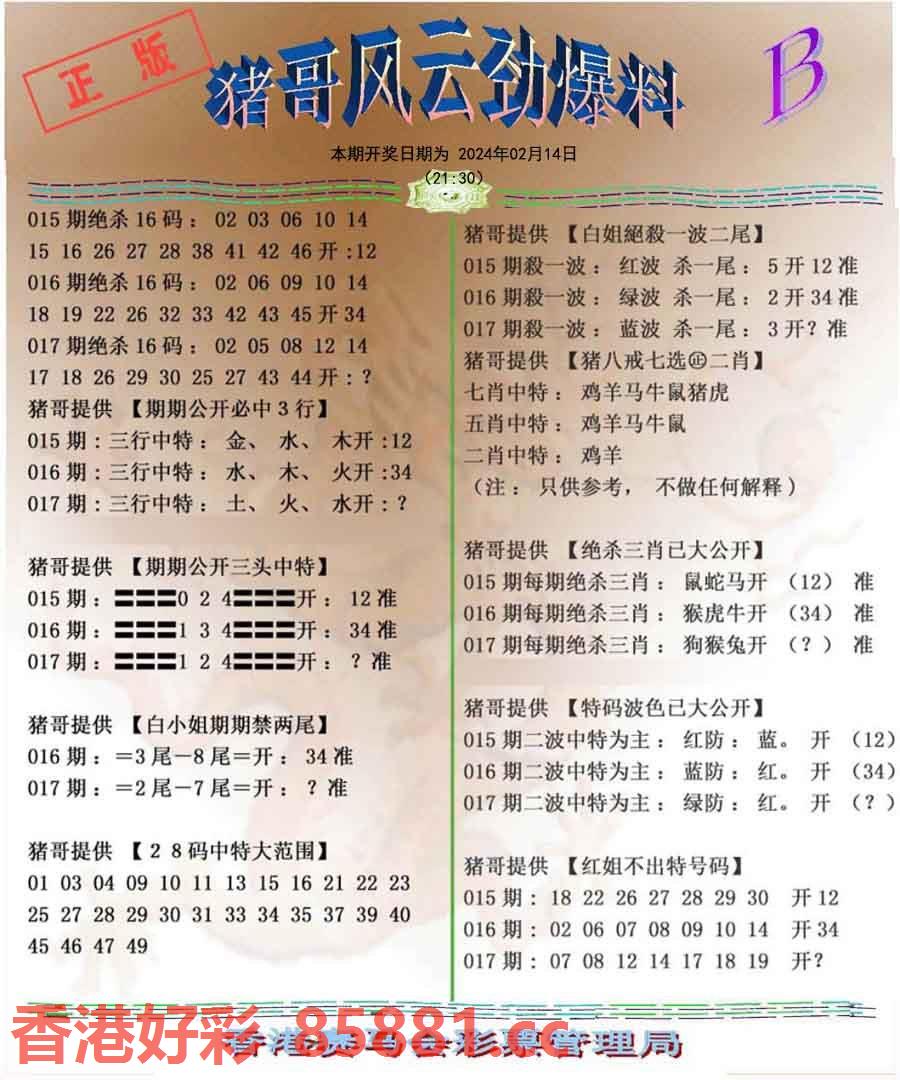 正版
猪哥风云劲爆料
B
本期开奖日期为 2024年02月14日
(21:30)
015期绝杀16码：02 03 06 10 14
15 16 26 27 28 38 41 42 46开:12
016期绝杀16码：02 06 09 10 14
18 19 22 26 32 33 42 43 45开34
017期绝杀16码：02 05 08 12 14
17 18 26 29 30 25 27 43 44开：？
猪哥提供【期期公开必中3行】
015期：三行中特：金、水、木开:12
016期：三行中特：水、木、火开:34
017期：三行中特：土、火、水开：？
猪哥提供【期期公开三头中特】
015期：〓〓〓0 2 4〓〓〓开：12准
016期：〓〓〓1 3 4〓〓〓开：34准
017期：〓〓〓1 2 4〓〓〓开：？准
猪哥提供【白小姐期期禁两尾】
016期：＝3尾－8尾＝开：34准
017期：＝2尾－7尾＝开：？准
猪哥提供【２８码中特大范围】
01 03 04 09 10 11 13 15 16 21 22 23
25 27 28 29 30 31 33 34 35 37 39 40
45 46 47 49
猪哥提供【白姐絕殺一波二尾】
015期殺一波：红波 杀一尾：5开12准
016期殺一波：绿波 杀一尾：2开34准
017期殺一波：蓝波 杀一尾：3开？准
猪哥提供【猪八戒七选㊣二肖】
七肖中特：鸡羊马牛鼠猪虎
五肖中特：鸡羊马牛鼠
二肖中特：鸡羊
（注：只供参考，不做任何解释）
猪哥提供【绝杀三肖已大公开】
015期每期绝杀三肖：鼠蛇马开（12）准
016期每期绝杀三肖：猴虎牛开（34）准
017期每期绝杀三肖：狗猴兔开（？）准
猪哥提供【特码波色已大公开】
015期二波中特为主：红防：蓝。开（12）
016期二波中特为主：蓝防：红。开（34）
017期二波中特为主：绿防：红。开（？）
猪哥提供【红姐不出特号码】
015期：18 22 26 27 28 29 30 开12
016期：02 06 07 08 09 10 14 开34
017期：07 08 12 14 17 18 19 开？
香港好彩 85881.cc
香港赛马会彩票管理局